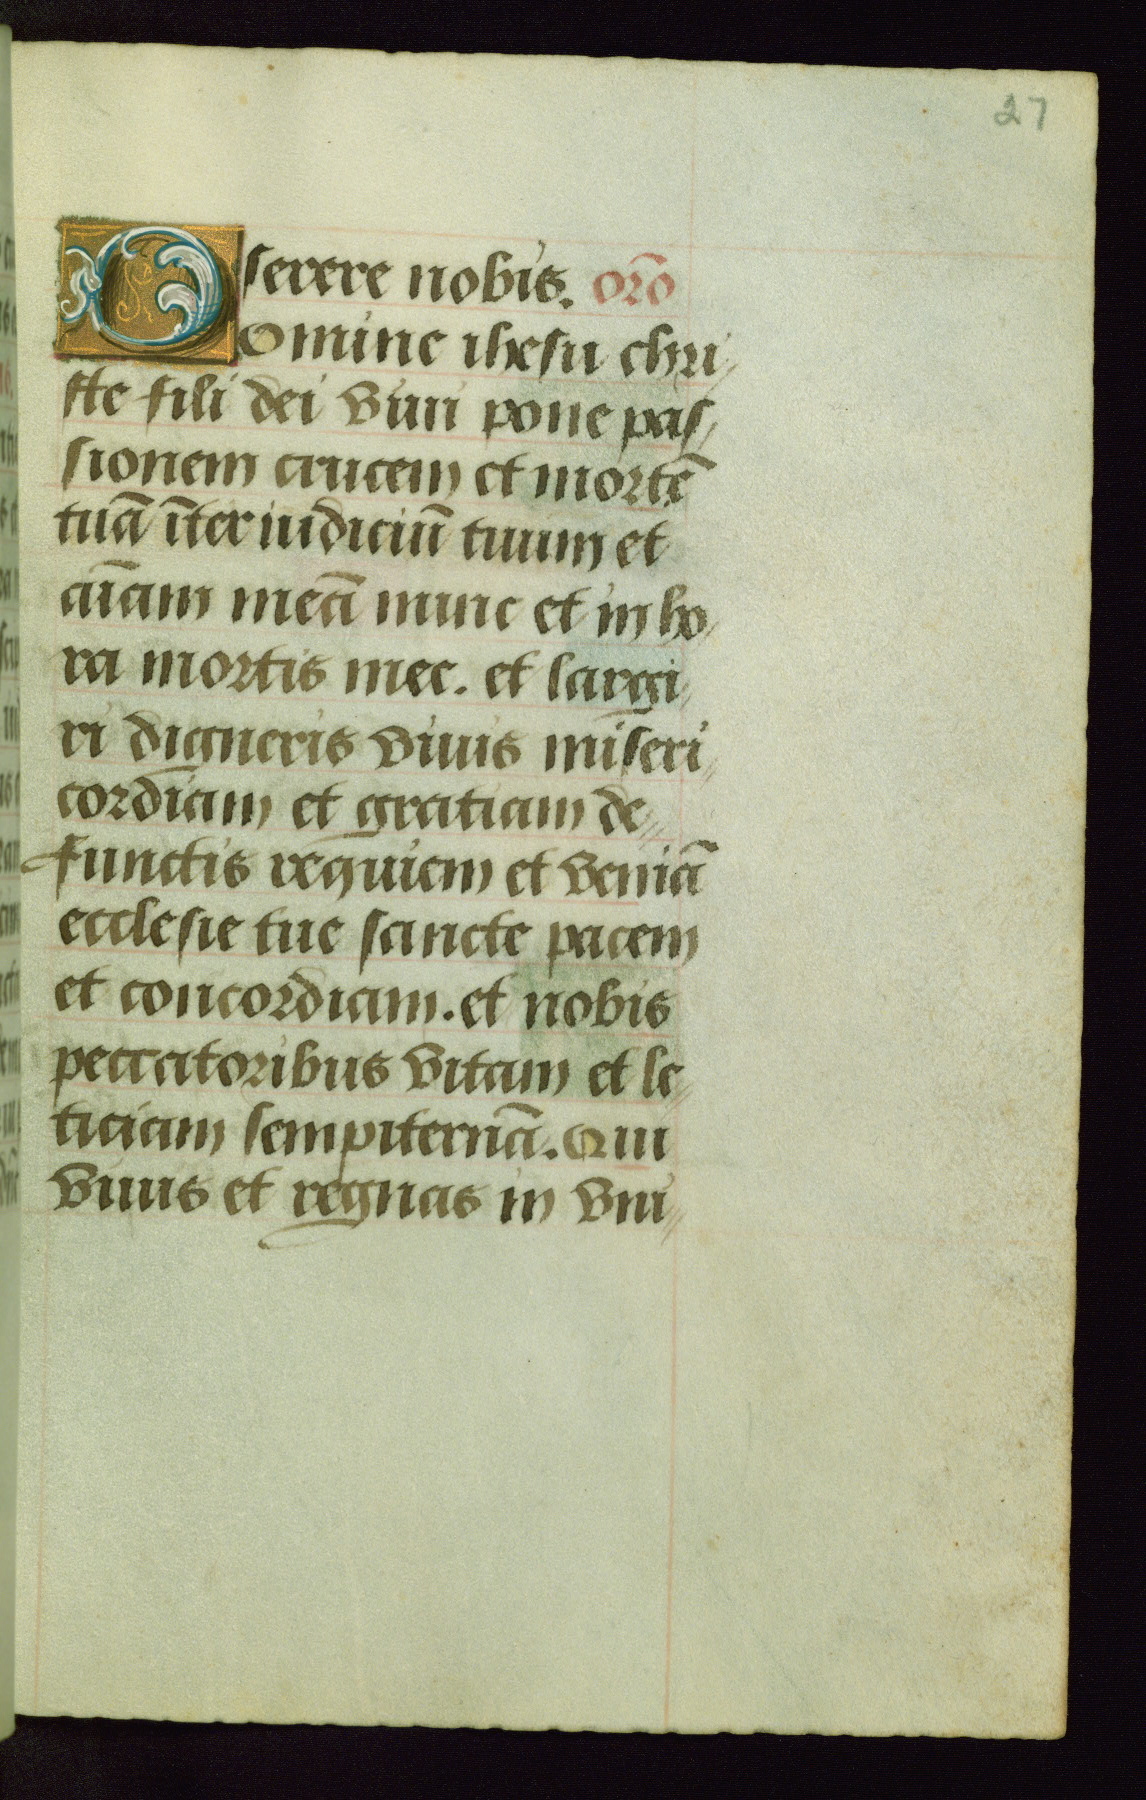 27
serere nobis. orō
Domine ihesu chri
ste fili dei viui pone pas
sionem crucem et mortē
tuā īter iudiciū tuum et
aīam meā nunc et in ho
ra mortis mee. et largi
ri digneris viuis miseri
cordiam et gratiam de
functis requiem et veniā
ecclesie tue sancte pacem
et concordiam. et nobis
peccatoribus vitam et le
ticiam sempiternā. Qui
viuis et regnas in vni